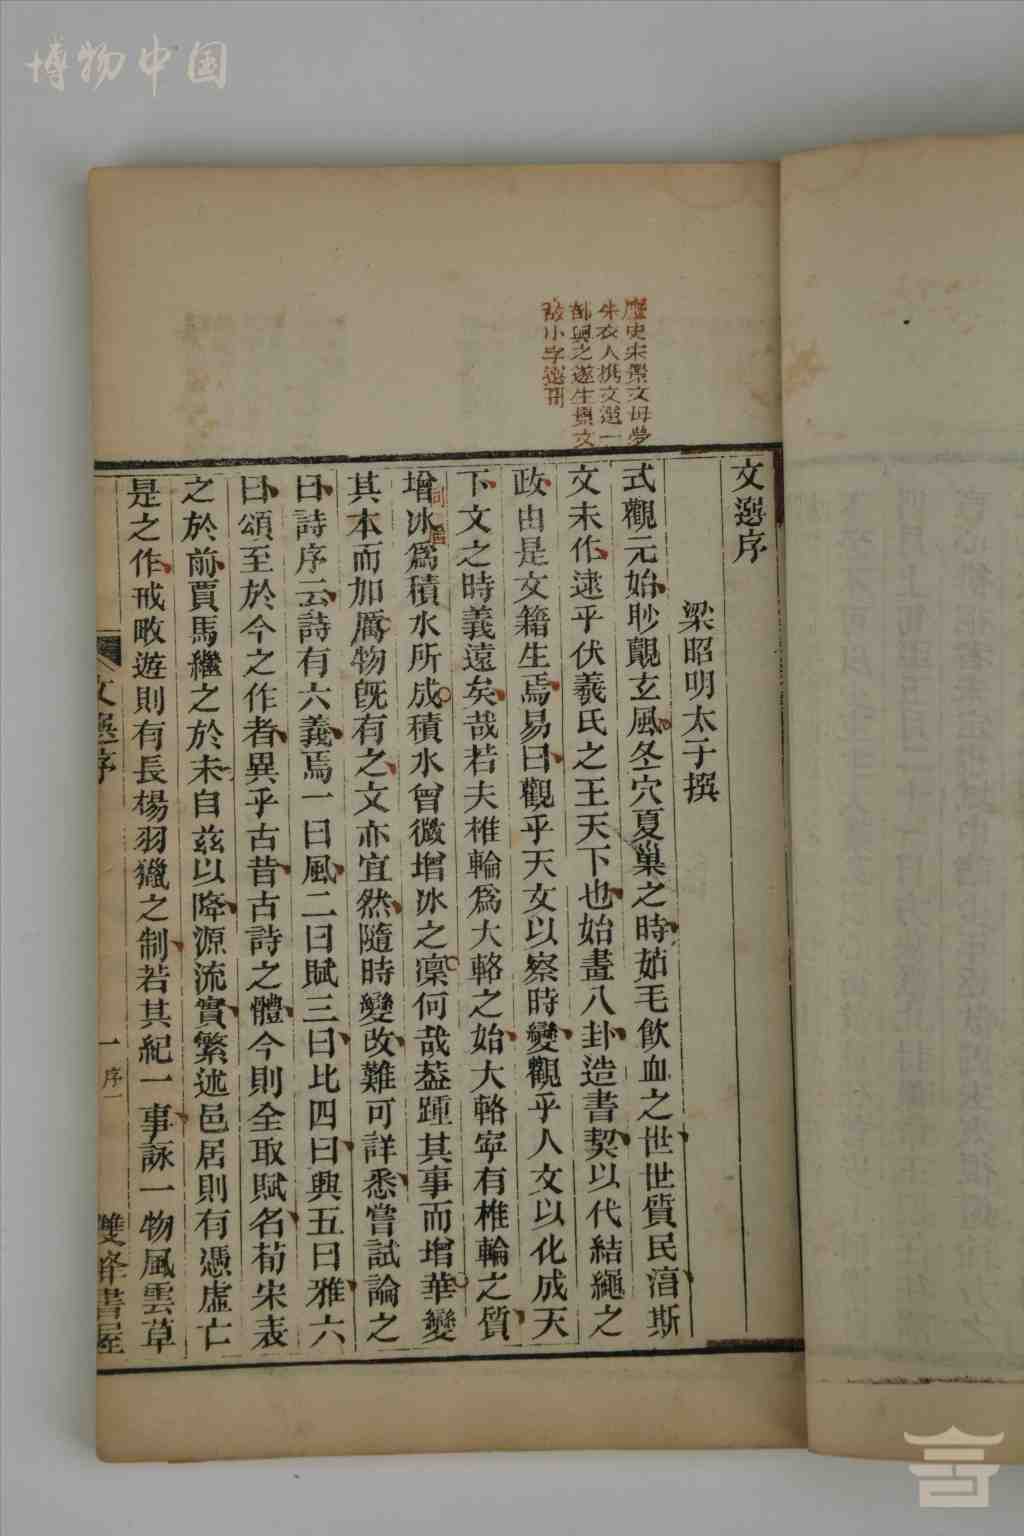 博物中国
文選序
梁昭明太子撰
式觀元始眇覿玄風冬穴夏巢之時茹毛飲血之世世質民淳斯
文未作逮乎伏羲氏之王天下也始畫八卦造書契以代結繩之
政由是文籍生焉易曰觀乎天文以察時變觀乎人文以化成天
下文之時義遠矣哉若夫椎輪爲大輅之始大輅寧有椎輪之質
增冰爲積水所成積水曾微增冰之凜何哉葢踵其事而增華變
其本而加厲物旣有之文亦宜然隨時變改難可詳悉嘗試論之
曰詩序云詩有六義焉一曰風二曰賦三曰比四曰興五曰雅六
曰頌至於今之作者異乎古昔古詩之體今則全取賦名荀宋表
之於前賈馬繼之於末自茲以降源流實繁述邑居則有憑虛亡
是之作戒畋遊則有長楊羽獵之制若其紀一事詠一物風雲草
文選序
一
序一
雙峰書屋
史宋景文母夢
朱衣人携文選一
部與之遂生景文
故小字選哥